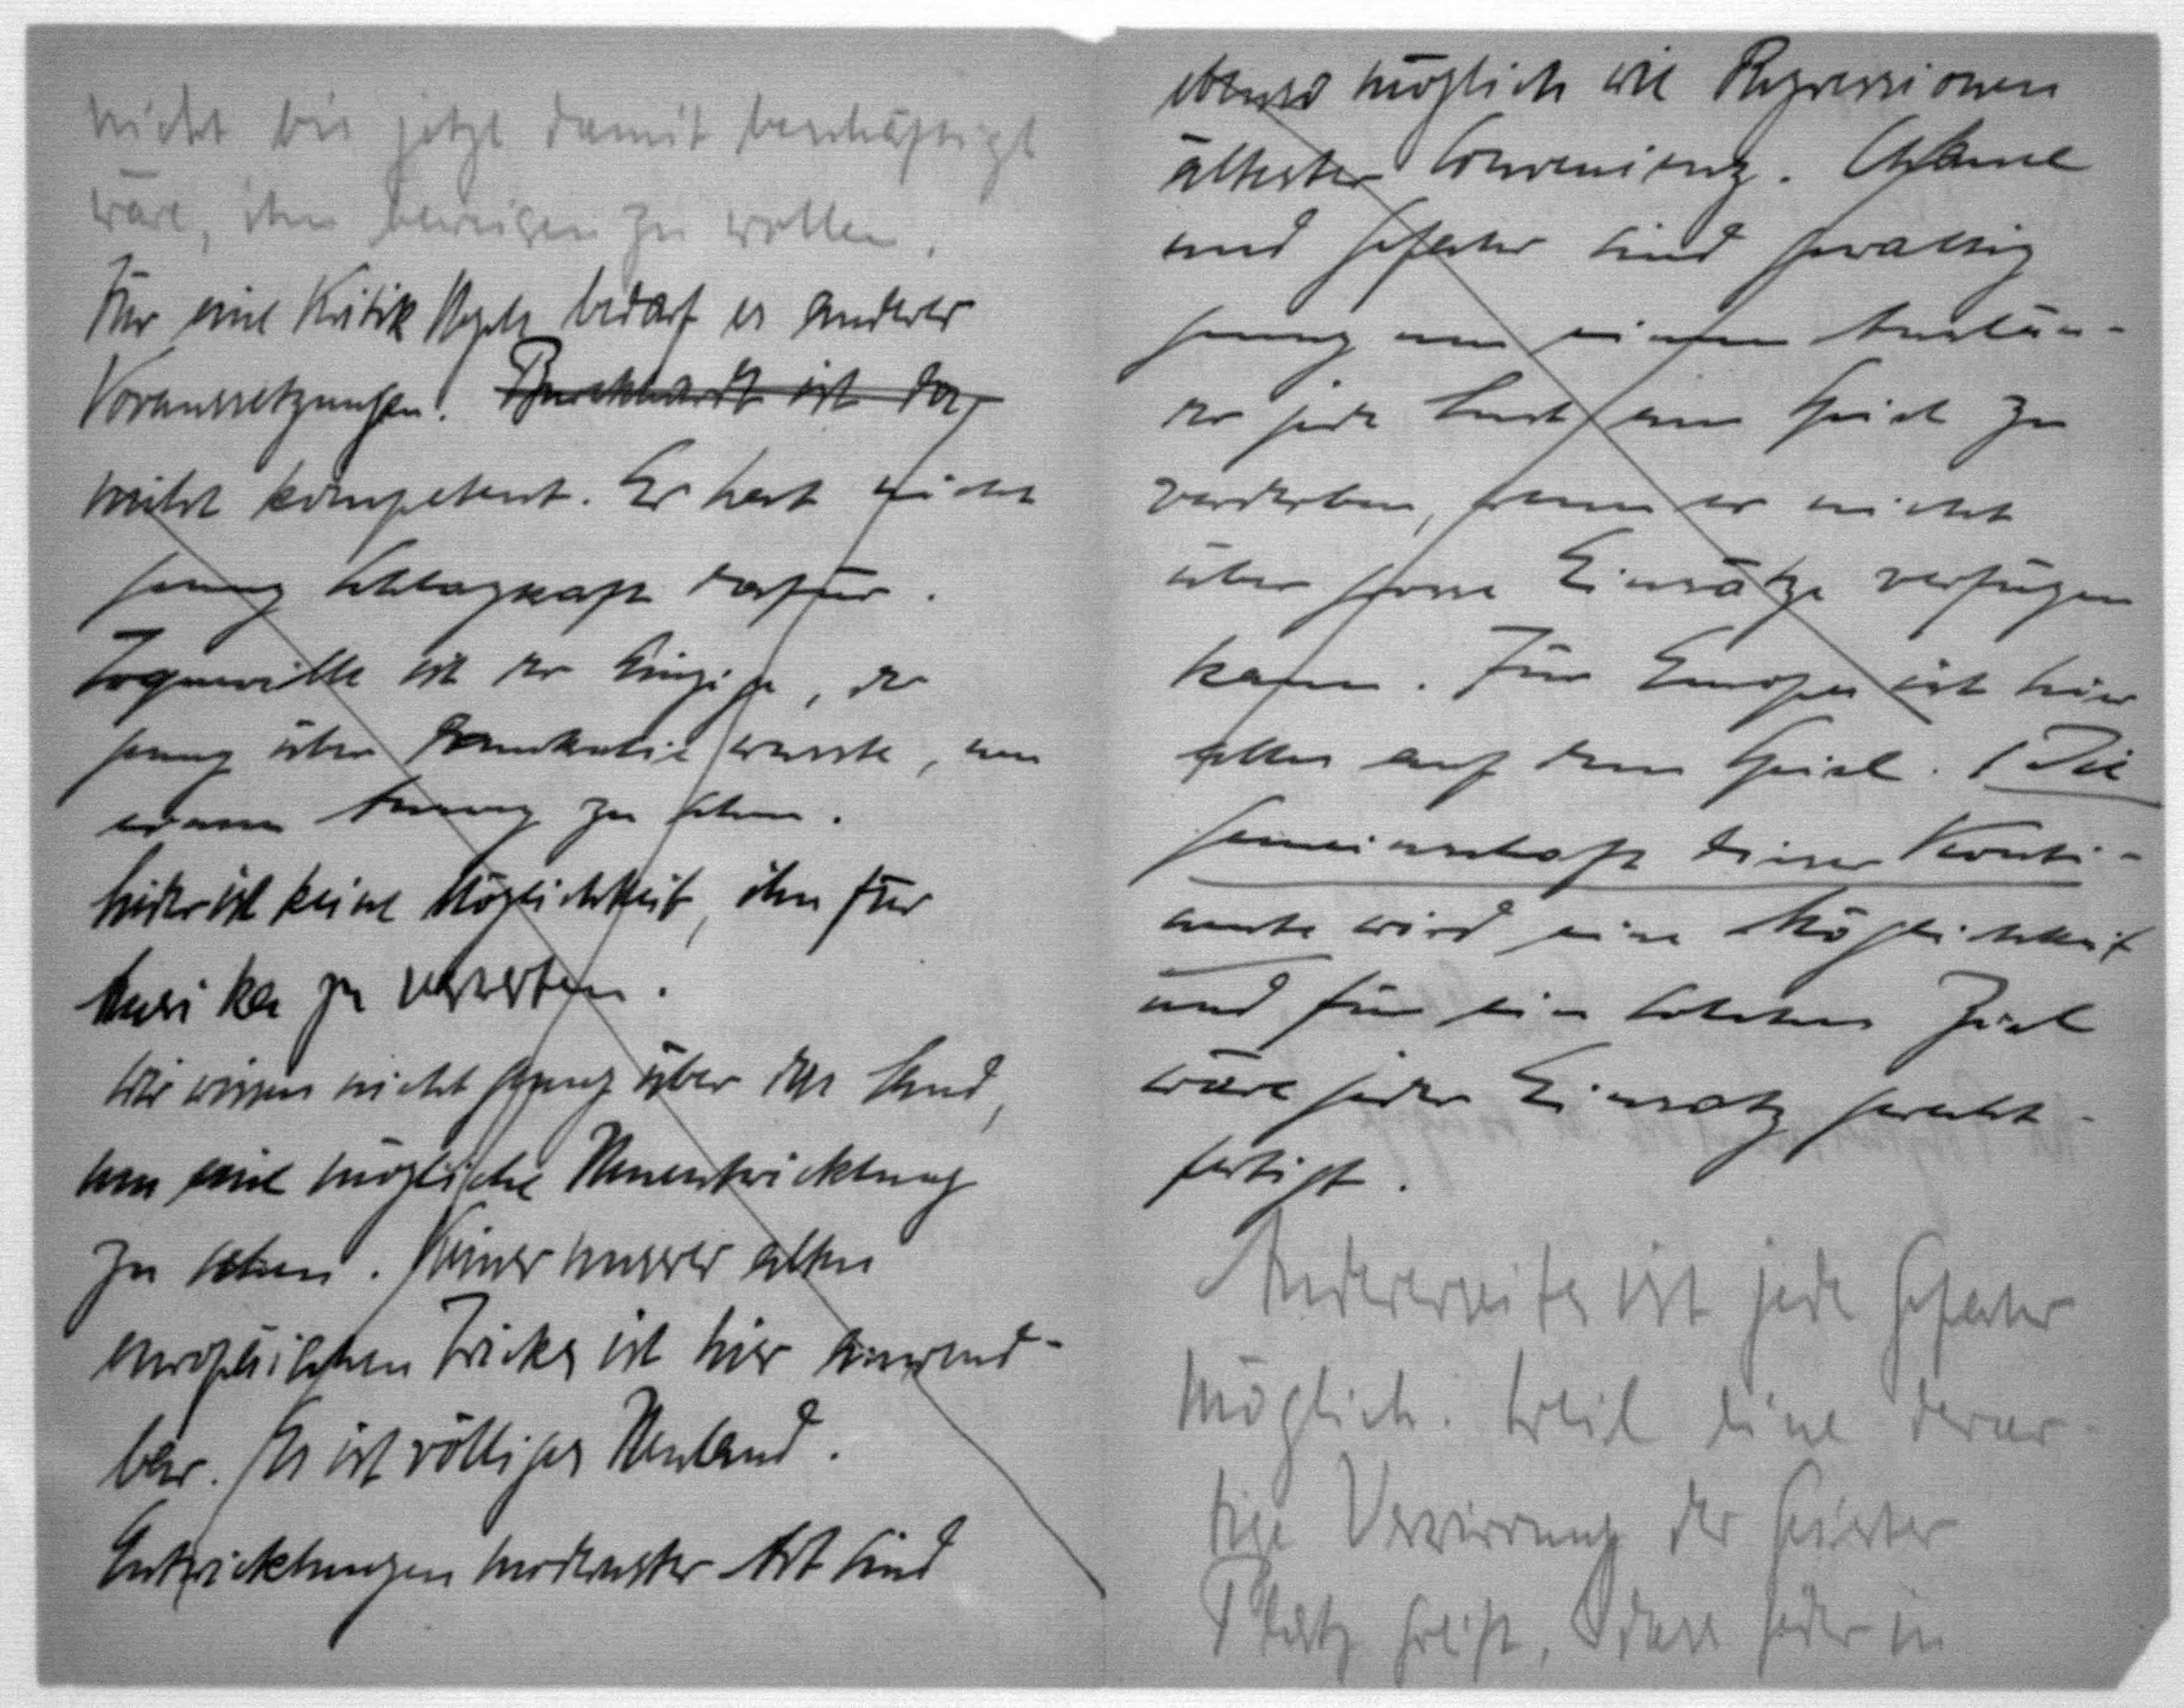 nicht bis jetzt damit beschäftigt
wäre, ihm beweisen zu wollen.
Für eine Kritik Hegels bedarf es anderer
Voraussetzungen. Burckhardt ist da
nicht kompetent. Er hat nicht
genug Schlagkraft dafür.
Toqueville ist der Einzige, der
genug über Demokratie wusste, um
daran Anteil zu
Leider ist keine Möglichkeit, ihn für
Amerika zu verwerten.
Wir wissen nicht genug über das Land,
um eine mögliche Neuentwicklung
zu sehen. Keiner unserer alten
europäischen Tricks ist hier anwend-
bar. Es ist völliges Neuland.
Entwicklungen modernster Art sind
ebenso möglich wie Regressionen
ältester Convenienz. Chance
und Gefahr sind gewaltig
genug um einem Auslän-
der jede Lust am Spiel zu
verderben, wenn er nicht
über grosse Einsätze verfügen
kann. Für Europa ist hier
alles auf dem Spiel. Die
Gemeinschaft dieser Konti-
nente wird eine Möglichkeit
und für ein solches Ziel
wäre jeder Einsatz gerecht-
fertigt.
Andererseits ist jede Gefahr
möglich. Weil eine derar-
tige Verwirrung der Geister
Platz greift, dass jeder in